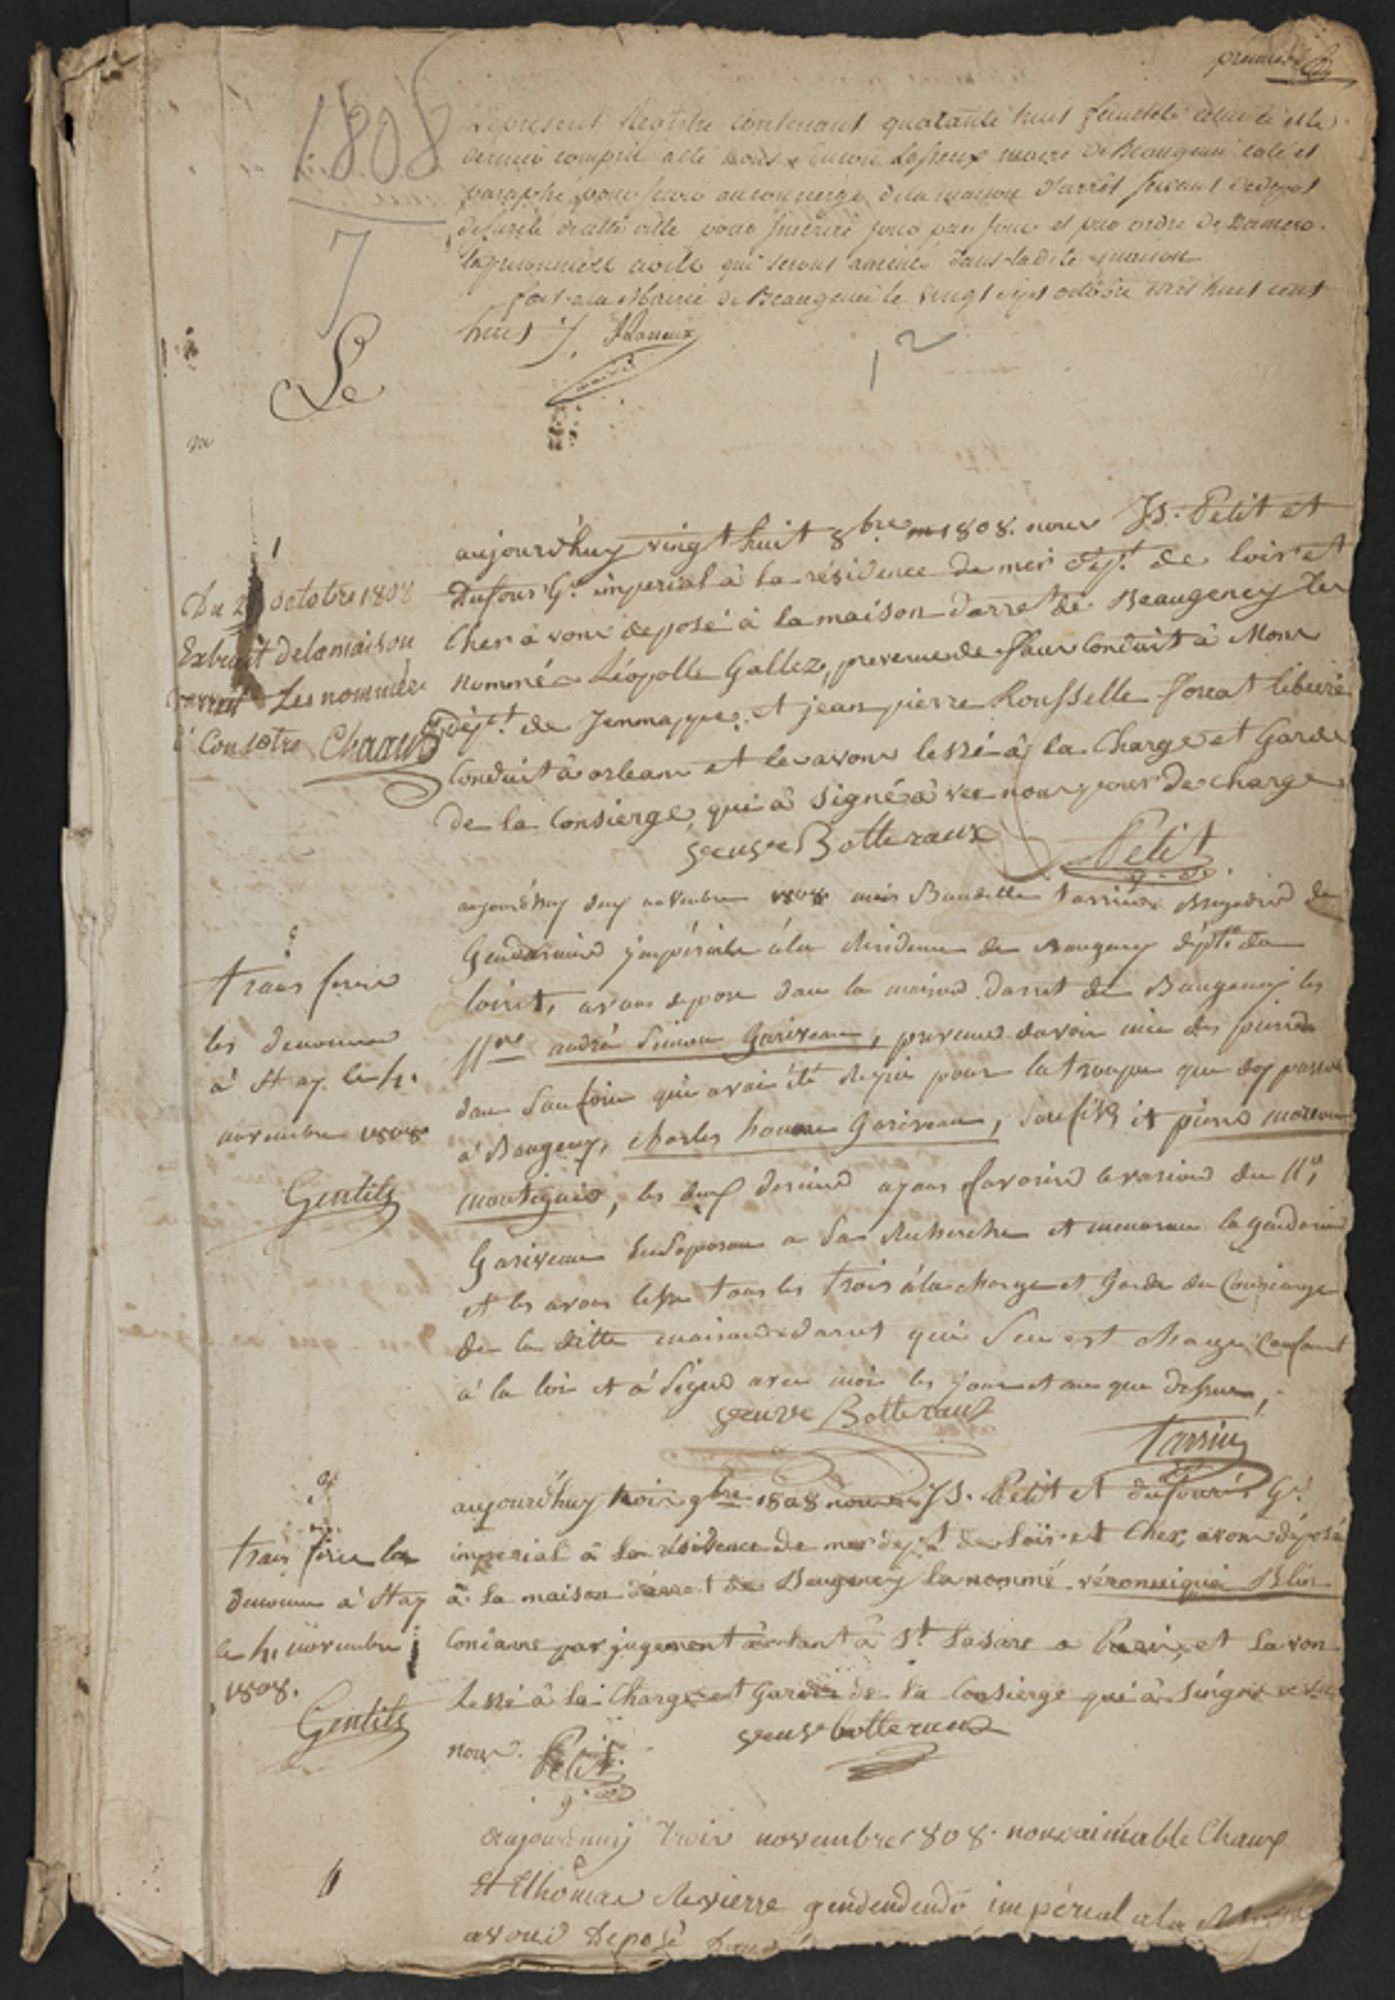 premier
1808
7
Le present Registre contenant quarante huit feuillets celui ci et le
dernier compris a été par nous maire de Beaugenci coté et
paraphé pour servir au concierge de la maison d'arrêt servant de depot
de sureté de cette ville pour inscrire jour par jour et par ordre de numero
les prisonniers civils qui seront amenés dans la dite maison
fait a la Mairie de Beaugenci le vingt sept octobre mil huit cent
huit
maire
12
Le
1
Du 2 octobre 1808
Extrait de la maison
d'arrest Les nommés
Ci Contre Chaaux
aujourd'huy vingt huit 8bre 1808. nous Js. Petit et
Dufour Ge. imperial à la résidence de mer dept. de loir et
Cher à vons deposé à la maison darret de Beaugency les
nommé Léopolle Gallez, prevenu de faux conduit à Mons
dept. de Jemmappe et jean pierre Rousselle forcat libéré
Conduit à orlean et le avons lessé à la Charge et Garde
de la Consierge, qui à signé à vec nous pour de charge
veuve Botteraux
Petit
2
transferé
les denommé
a St ay le 4.
novembre 1808
Gentils
aujourd'huy deux novembre 1808 mois Baudille tarrieu Brigadier de
Gendarmerie jmpériale à la Residence de Baugency dépte. du
loiret, avons depose dans la maison darret de Baugency les
Nre andré Simon Gariveau, prevenu davoir mie des pierres
dans foin qui avait été Requi pour la troupe qui doy passer
a Baugency, charles honore Gariveau, son fils et pierre moreau
montignié, les deux dernier ayans favorisé levasion du Ne
Gariveau a Sa Recherche et la gendarmerie
et les avons lesse tous les trois à la charge et Garde du Consierge
de la ditte maison darret qui Sen est charge Conforment
à la loi et à Signé avec moi les jour et an que dessus,
veuve Botteraux
Tarrieu
3
transferé la
denommé à St ay
le 4 novembre
1808.
Gentils
aujourd'huy trois 9bre 1808 nous Js. Petit et dufour Ge.
imperial à la résidence de mer dept. de Loir et Cher, avons déposé
à la maison darret de Beaugency la nommé véronnique Blin
Condanné par jugement à St Lasare a Paris, et lavon
lessé à la Charge et Garde de la Consierge qui à Singné a vec
nous. Petit
veuve botteraux
4
aujourdhuij trois novembre 1808. nous aimable Chaux
et thomas Revierre gendendende impérial a la
avons Deposé Dans